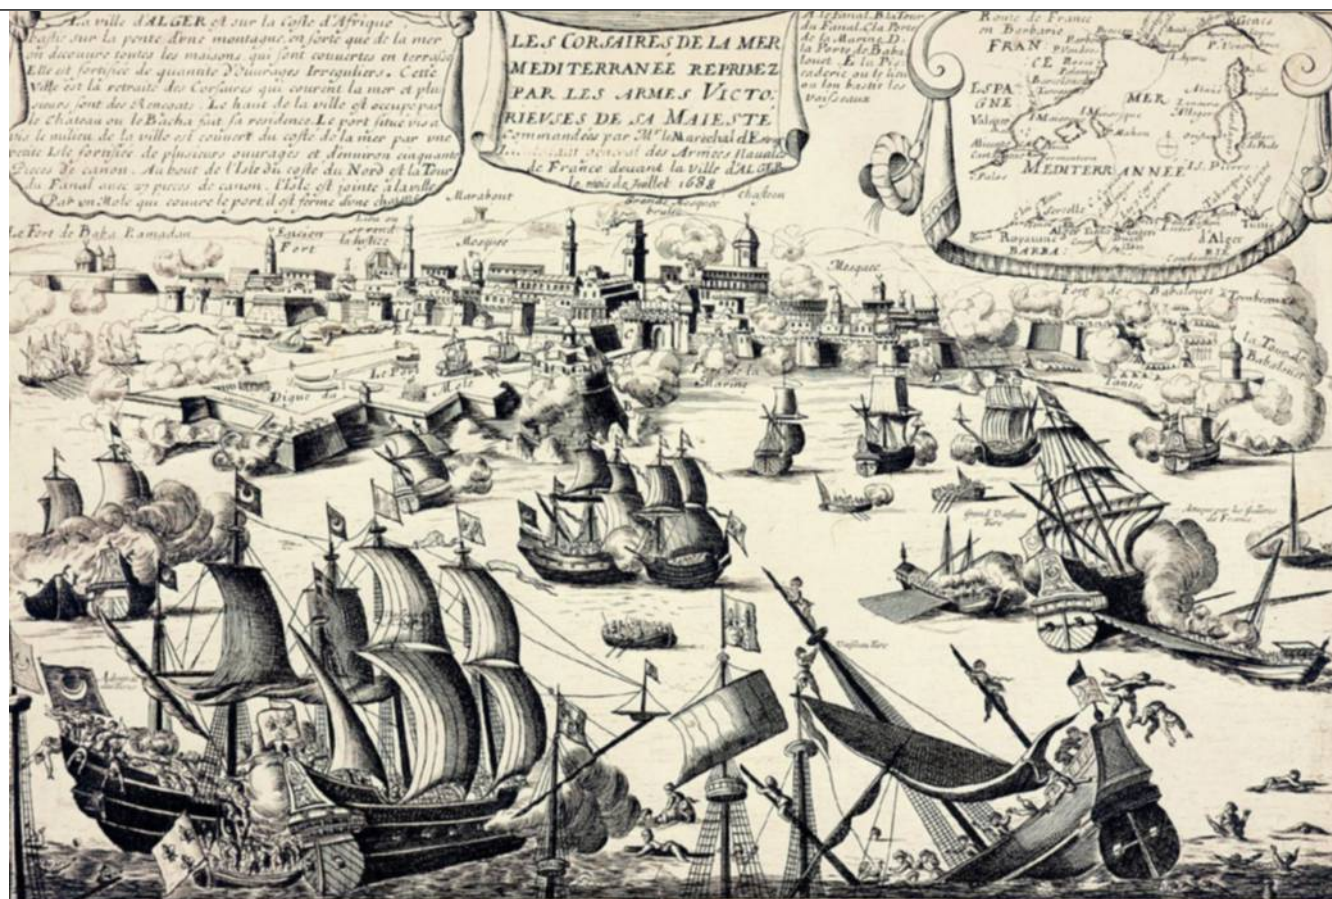 La ville d'ALGER est sur la Coste d'Afrique
bastie sur la pente d'une montagne, en sorte que de la mer
on decouvre toutes les maisons, qui sont couvertes en terrasse
Elle est fortifiée de quantité d'Ouvrages Irreguliers. Cette
Ville est la retraite des Corsaires qui courent la mer et plu
sieurs sont des Renegats. Le haut de la ville est occupé par
le Château ou le Bacha fait sa residence. Le port situé vis a
vis le milieu de la ville est couvert du costé de la mer par une
petite Isle fortifiée de plusieurs ouvrages et d'environ cinquante
Pieces de canon. Au bout de l'Isle du costé du Nord est la Tour
du Fanal avec 27 pieces de canon. l'Isle est jointe à la ville
Par un Mole qui couvre le port, il est formé d'une
LES CORSAIRES DE LA MER
MEDITERRANÉE REPRIMEZ
PAR LES ARMES VICTO.
RIEUSES DE SA MAIESTE
Commandées par Mr. le Marechal d'Es
general des Armées Nauales
de France devant la ville d'ALGER
le mois de Juillet 1688
A le Fanal. B la Tour
du Fanal. C la Porte
de la Marine. D.
la Porte de Baba
louet. E la Pis
caderie ou le lieu
ou lon bastit les
vaisseaux
Route de France
en Barbarie
Genes
FRAN
CE
ESPA
GNE
MER
Mahon
I. S. Pierre
MEDITERRANNEE
Palos
Alger
Tunis
Royaume
d'Alger
BARBA
RIE
Marabout
Grande Mosquee
brulee
Chasteau
Le Fort de Baba Ramadan
Encien
Fort
Mosquee
Mosquee
Fort de Babalouet
Tombeaux
la Tour de
Babalouet
Tantes
Le Port
Digue du Mole
Porte de la
Marine
Grand Vaisseau
Turc
Attaque par les Galeres
de France
Vaisseau Turc